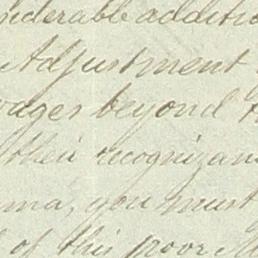 nsiderable additio
Adjustment
wages beyond t
their recognizan
ma, you must
of this poor M